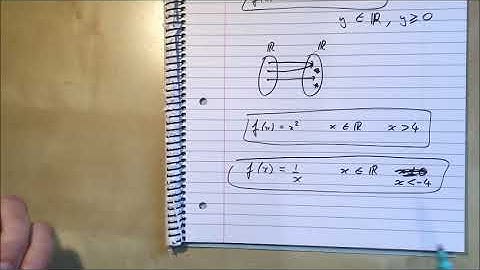 y ∈ ℝ, y ≥ 0
ℝ ℝ
f(x) = x² x ∈ ℝ x > 4
f(x) = 1/x x ∈ ℝ
x < -4